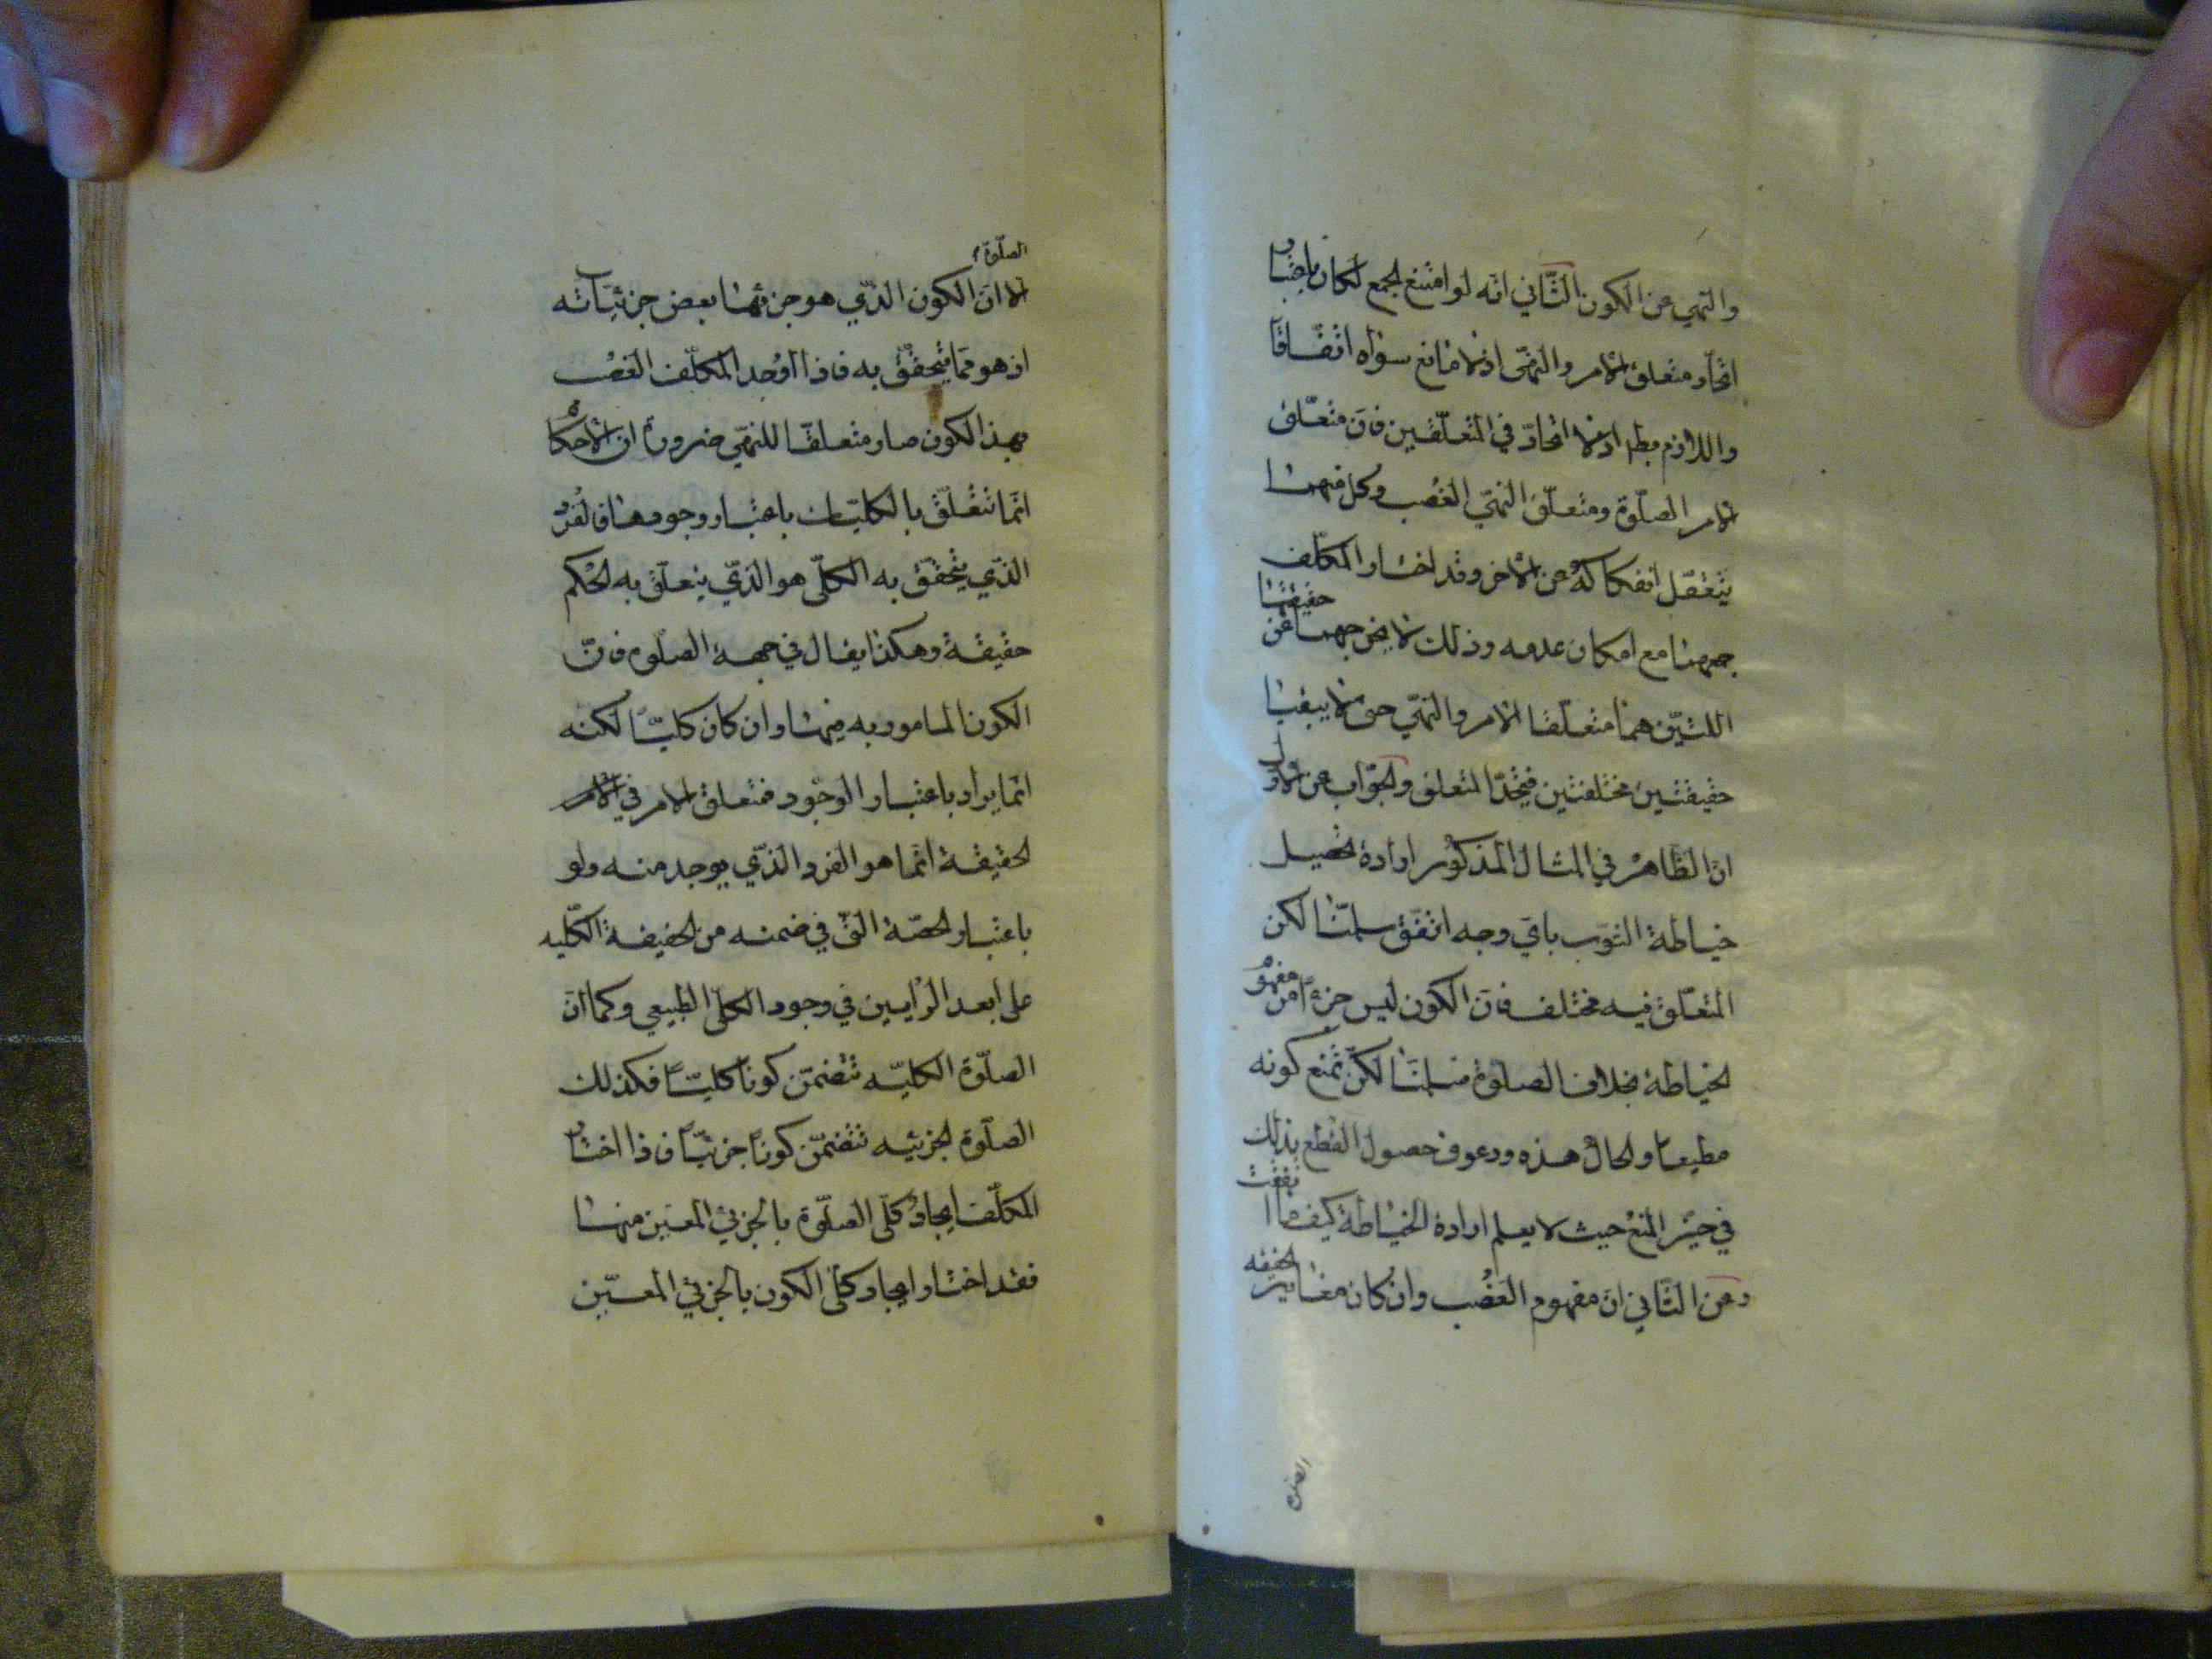 والنهي عن الكون الثّاني انّه لو امتنع الجمع لكان باعتبار
اتّحاد متعلق الامر والنهّى اذ لا مانع سواه اتّفاقا
واللازم بط اذ لا اتحاد في المتعلّقين فانّ متعلق
الامر الصلّوة ومتعلّق النهّي الغصب وكل منهما
يتعقّل انفكاكه عن الاخر وقد اختار المكلّف
جمعهما مع امكان عدمه وذلك لا يخرجهما عن حقيقتهما
اللتيّن هما متعلّقا الامر والنهّي حتى لا يبقيا
حقيقتين مختلفتين فيتّحد المتعلق والجوّاب عن الاوّل
انّ الظّاهر في المثال المذكور ارادة تحصيل
خياطة الثوّب باىّ وجه اتفّق سلمنّا لكن
المتعلّق فيه مختلف فانّ الكون ليس جزءاً من مفهوم
الخياطة بخلاف الصلوة سلمنّا لكن نمنع كونه
مطيعاً والحال هذه ودعوى حصول القطع بذلك
في حيّز المنع حيث لا يعلم ارادة الخياطة كيف ما اتفقت
وعن الثّاني انّ مفهوم الغصب وان كان مغايرا لحقيقة
الصلوة
الصلّوة
الا انّ الكون الذّي هو جزئها بعض جزئيّاته
اذ هو ممّا يتحقّق به فاذا اوجد المكلّف الغصب
بهذا الكون صار متعلقّا للنهّي ضرورة ان الاحكام
انّما تتعّلق بالكليّات باعتبار وجودها فالفرد
الذّي يتحقّق به الكلّى هو الذّي يتعلّق به الحكم
حقيقة وهكذا يقال في جهة الصلوة فانّ
الكون المامور به فيها وان كان كليّا لكنه
انّما يراد باعتبار الوجود فمتعلق الامر في
الحقيقة انّما هو الفرد الذّي يوجد منه ولو
باعتبار الحصّة التى في ضمنه من الحقيقة الكليّه
على ابعد الرّايين في وجود الكلّى الطبيعي وكما انّ
الصلّوة الكليّه تتضمّن كونا كليّاً فكذلك
الصلّوة الجزئيه تتضمّن كوناً جزئيّاً فاذا اختار
المكلّف ايجاد كلّى الصلّوة بالجزئي المعين منها
فقد اختار ايجاد كلّى الكون بالجزئي المعيّن